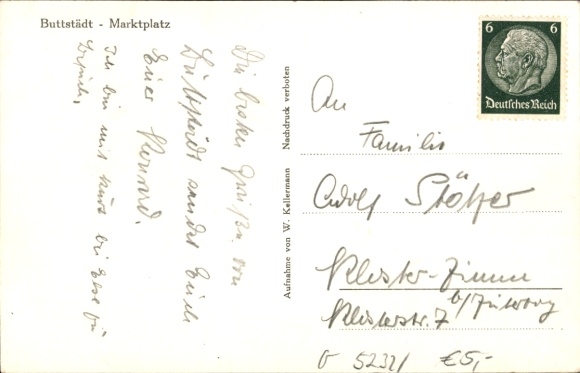 Buttstädt - Marktplatz
Die besten Grüße von
Buttstädt sendet Euch
Euer
Ich bin mit Kurt bei
Besuch.
Aufnahme von W. Kellermann Nachdruck verboten
6 6
Deutsches Reich
An
Familie
Adolf Stötzer
Kloster-Zimmern
Klosterstr. 7
G 5232/ €5,-